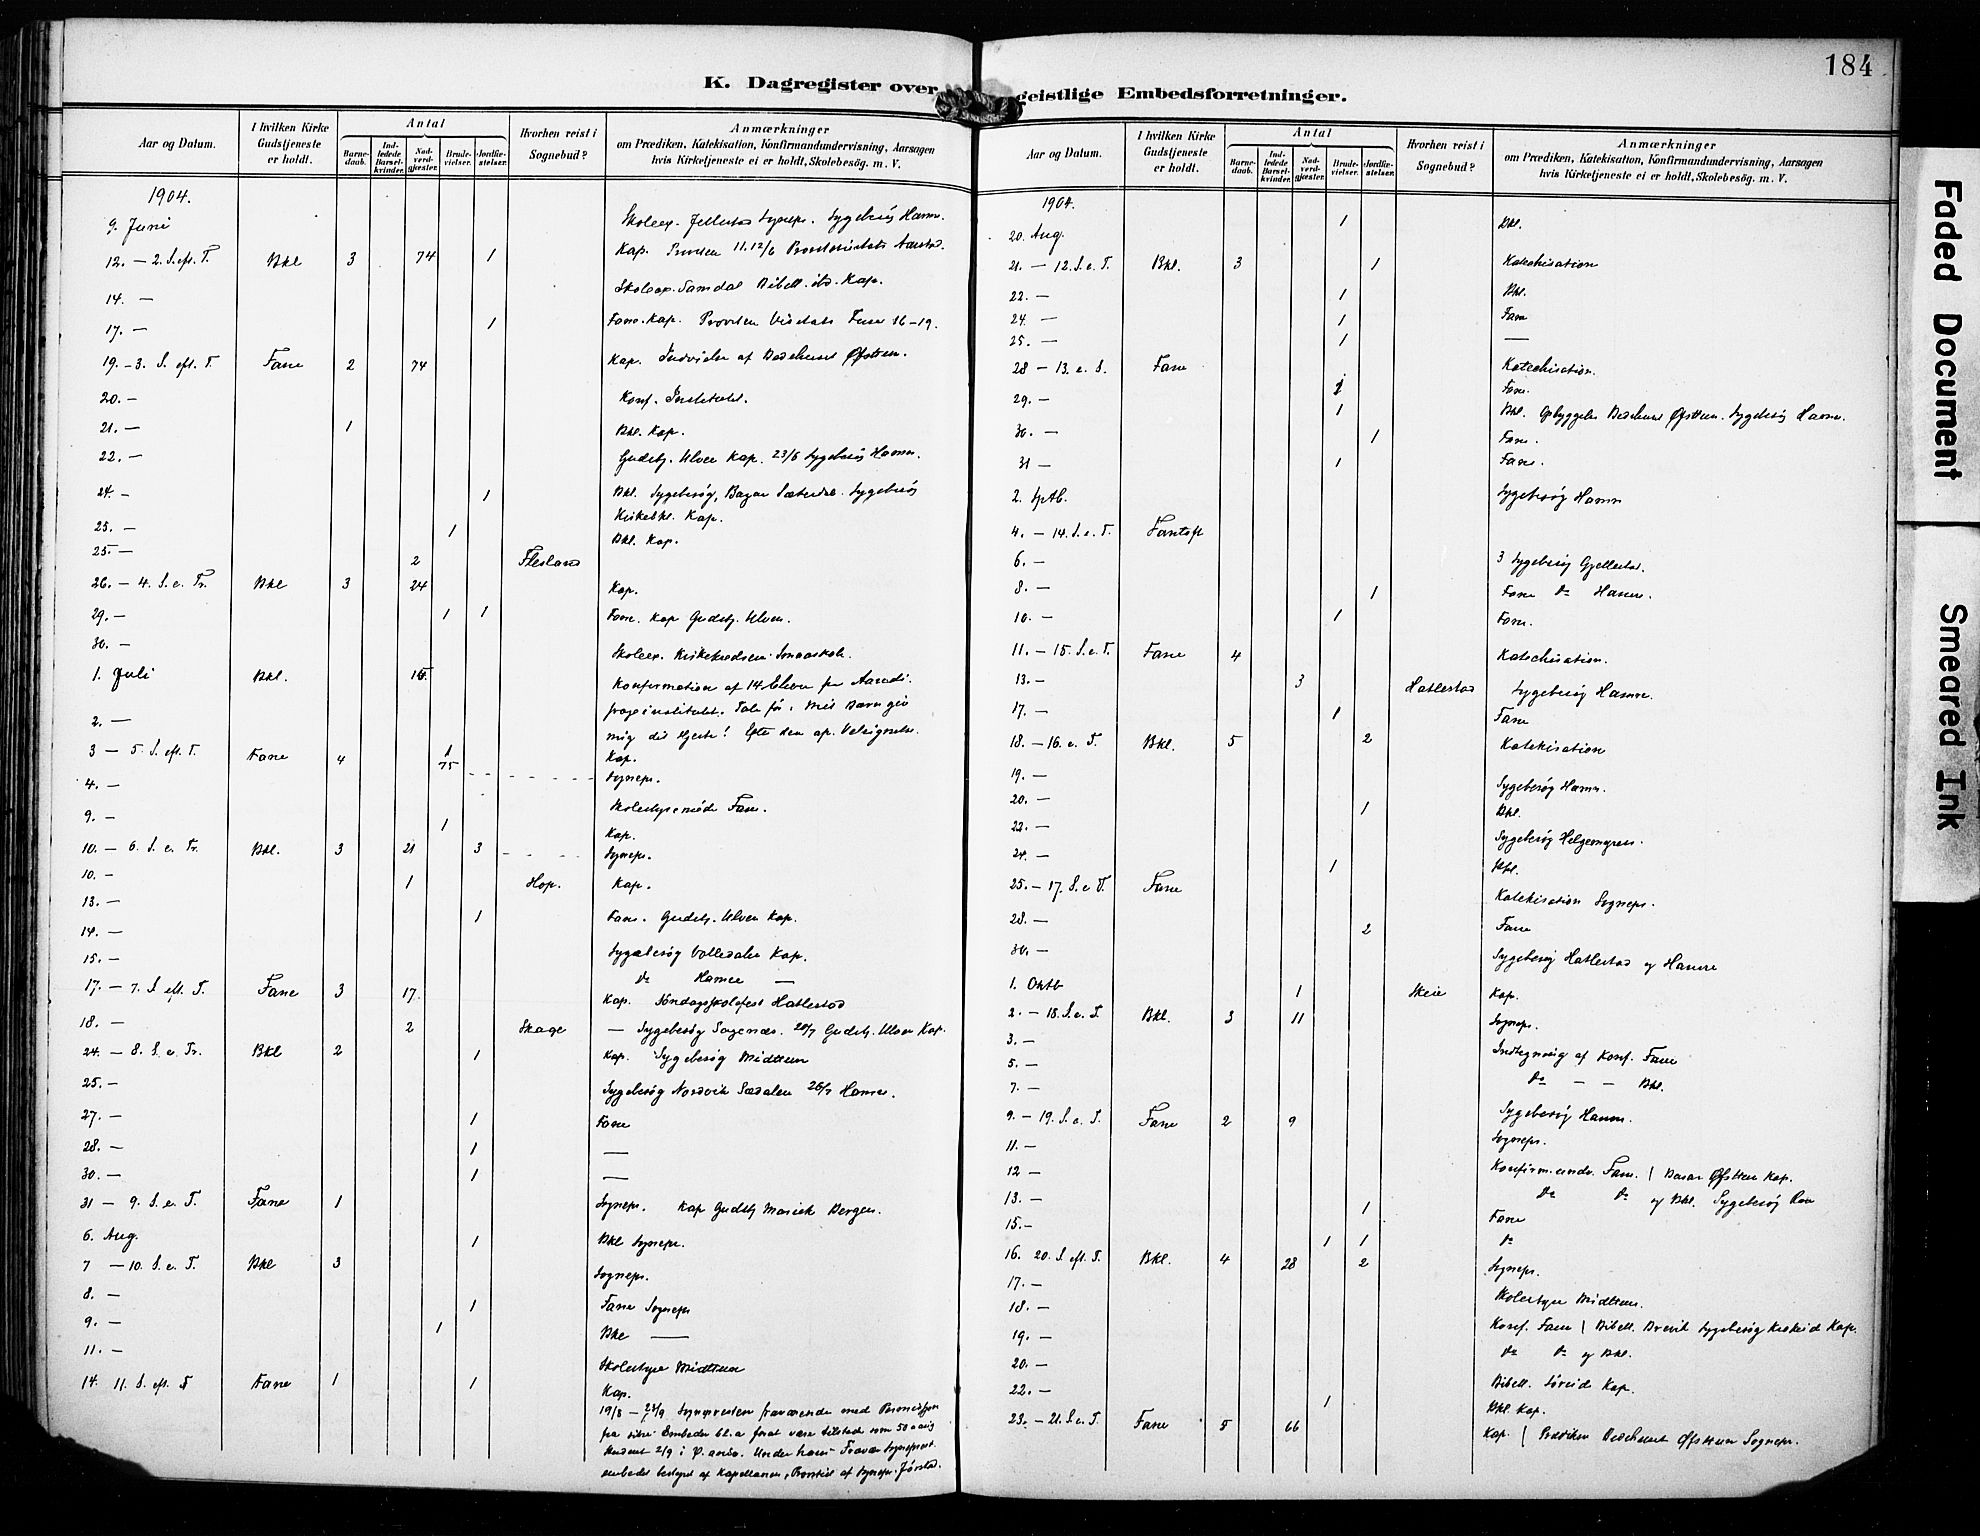 184
K. Dagregister over geistlige Embedsforretninger.
Aar og Datum. I hvilken Kirke Gudstjeneste er holdt. Antal Barnedaab. Indledede Barselkvinder. Nadverdgjæster. Brudevielser. Jordfæstelser. Hvorhen reist i Sognebud? Anmærkninger om Prædiken, Katekisation, Konfirmandundervisning, Aarsagen hvis Kirketjeneste ei er holdt, Skolebesög. m. V.
1904.
9. Juni Skoleex. Sygebesög Hamre.
12. — 2. S. eft. T. Bkl 3 74 1 Kap. 11. 12/6
14. — Skoleex. Samdal Bibell. Kap.
17. — 1 Fane. Kap. 16-19.
19. — 3. S. eft. T. Fane 2 74 Kap. Indvielse af Bedehuset Øfsttun.
20. — Konf. Institutet.
21. — 1 Bkl. Kap.
22. — Gudstj. Ulven Kap. 23/6 Sygebesög Hamre.
24. — 1 Bkl. Sygebesög, Bazar Sygebesög
Kap.
25. — 1 Bkl. Kap.
25. — 2 Flesland
26. — 4. S. e. Tr. Bkl 3 24 Kap.
29. — 1 1 Fane. Kap Gudstj. Ulven.
30. — Skoleex. Kirkekredsen Smaaskole.
1. Juli Bkl. Konfirmation af 14 Elever fra
2. — mig dit Hjerte! Efter den ap. Velsignelse.
3 — 5. S. eft. T. Fane 4 1 75 Kap.
Sognepr.
4. — Skolestyremöde Fane.
9. — 1 Kap.
10. — 6. S. e. Tr. Bkl. 3 21 3 Sognepr.
10. — 1 Hop. Kap.
13. — 1 Fane. Gudstj. Ulven Kap.
14. — Sygebesög Kap.
15. — do Hamre —
17. — 7. S. eft. T. Fane 3 17. Kap. Søndagsskolefest Hatlestad
18. — 2 Skage — Sygebesög 20/7 Gudstj. Ulven Kap.
24. — 8. S. e. Tr. Bkl 2 1 Kap. Sygebesög Midttun
25. — Sygebesög Nordvik Sædalen 26/7 Hamre.
27. — 1 Fane
28. — 1 —
30. — 1 —
31 — 9. S. e. T. Fane 1 Sognepr. Kap Gudstj Bergen.
6. Aug. 1 Bkl Sognepr.
7 — 10. S. e. T. Bkl 3 Sognepr.
8. — 1 Fane Sognepr
9. — 1 Bkl —
11. — Skolestyre Midttun
14. 11. S. eft. T Fane 1 1 Kap.
19/8 — Sognepresten fraværende med Permission
fra sine Embeder bl. a. forat være tilstede som 50 aarig
Student 2/9 i Under hans Fravær Sogneprest
embedet bestyret af Kapellanen, Provstiet af Sognepr. Jørstad.
Aar og Datum. I hvilken Kirke Gudstjeneste er holdt. Antal Barnedaab. Indledede Barselkvinder. Nadverdgjæster. Brudevielser. Jordfæstelser. Hvorhen reist i Sognebud? Anmærkninger om Prædiken, Katekisation, Konfirmandundervisning, Aarsagen hvis Kirketjeneste ei er holdt, Skolebesög. m. V.
1904.
20. Aug. 1 Bkl.
21. — 12. S. e. T. Bkl. 3 1 Katechisation
22. — 1 Bkl.
24. — 1 Fane
25. — 1 —
28 — 13. e. S. Fane Katechisation.
29. — Fane.
1 Bkl. Opbyggelse Bedehuset Øfsttun. Sygebesög Hamre.
30. — 1 Fane.
31 — 1 Fane.
2. Sptb. Sygebesög Hamre
4. — 14. S. e. T. Fantoft
6. — 3 Sygebesög Gjellestad.
8. — 1 Fane do Hamre.
10. — 1 Fane.
11. — 15. S. e. T. Fane 4 Katechisation.
13. — 3 Hatlestad Sygebesög Hamre.
17. — 1 Fane
18. — 16. e. T. Bkl. 5 2 Katekisation
19. — Sygebesög Hamre.
20. — 1 Bkl.
22. — Sygebesög
24. — 1 Bkl.
25. — 17. S. e T. Fane Katekisation Sognepr.
28. — 2 Fane
30. — Sygebesög Hatlestad og Hamre
1. Oktb 1 Skeie Kap.
2. — 18. S. e. T. Bkl. 3 11 Sognepr.
3. — Indtegning af Konf. Fane
5. — do — — Bkl.
7. — Sygebesög Hamre.
9. — 19. S. e. T. Fane 2 9 Sognepr.
11. — Konfirm.undv. Fane. / Basar Øfsttun Kap.
12 — do do og Bkl. Sygebesög
13. — 1 Fane
15. — 1 1 do
16. 20. S. eft. T. Bkl. 4 28 2 Sognepr.
17. — Skolestyre Midttun.
18. — Konf. Fane / Bibell. Brevik Sygebesög Kap.
19. — do do og Bkl.
20. — Bibell. Søreid Kap.
22. — 1 Bkl. Kap.
23. — 21. S. e. T. Fane 5 66 Kap. / Prædiken Bedehuset Øfsttun Sognepr.
Faded Document
Smeared Ink